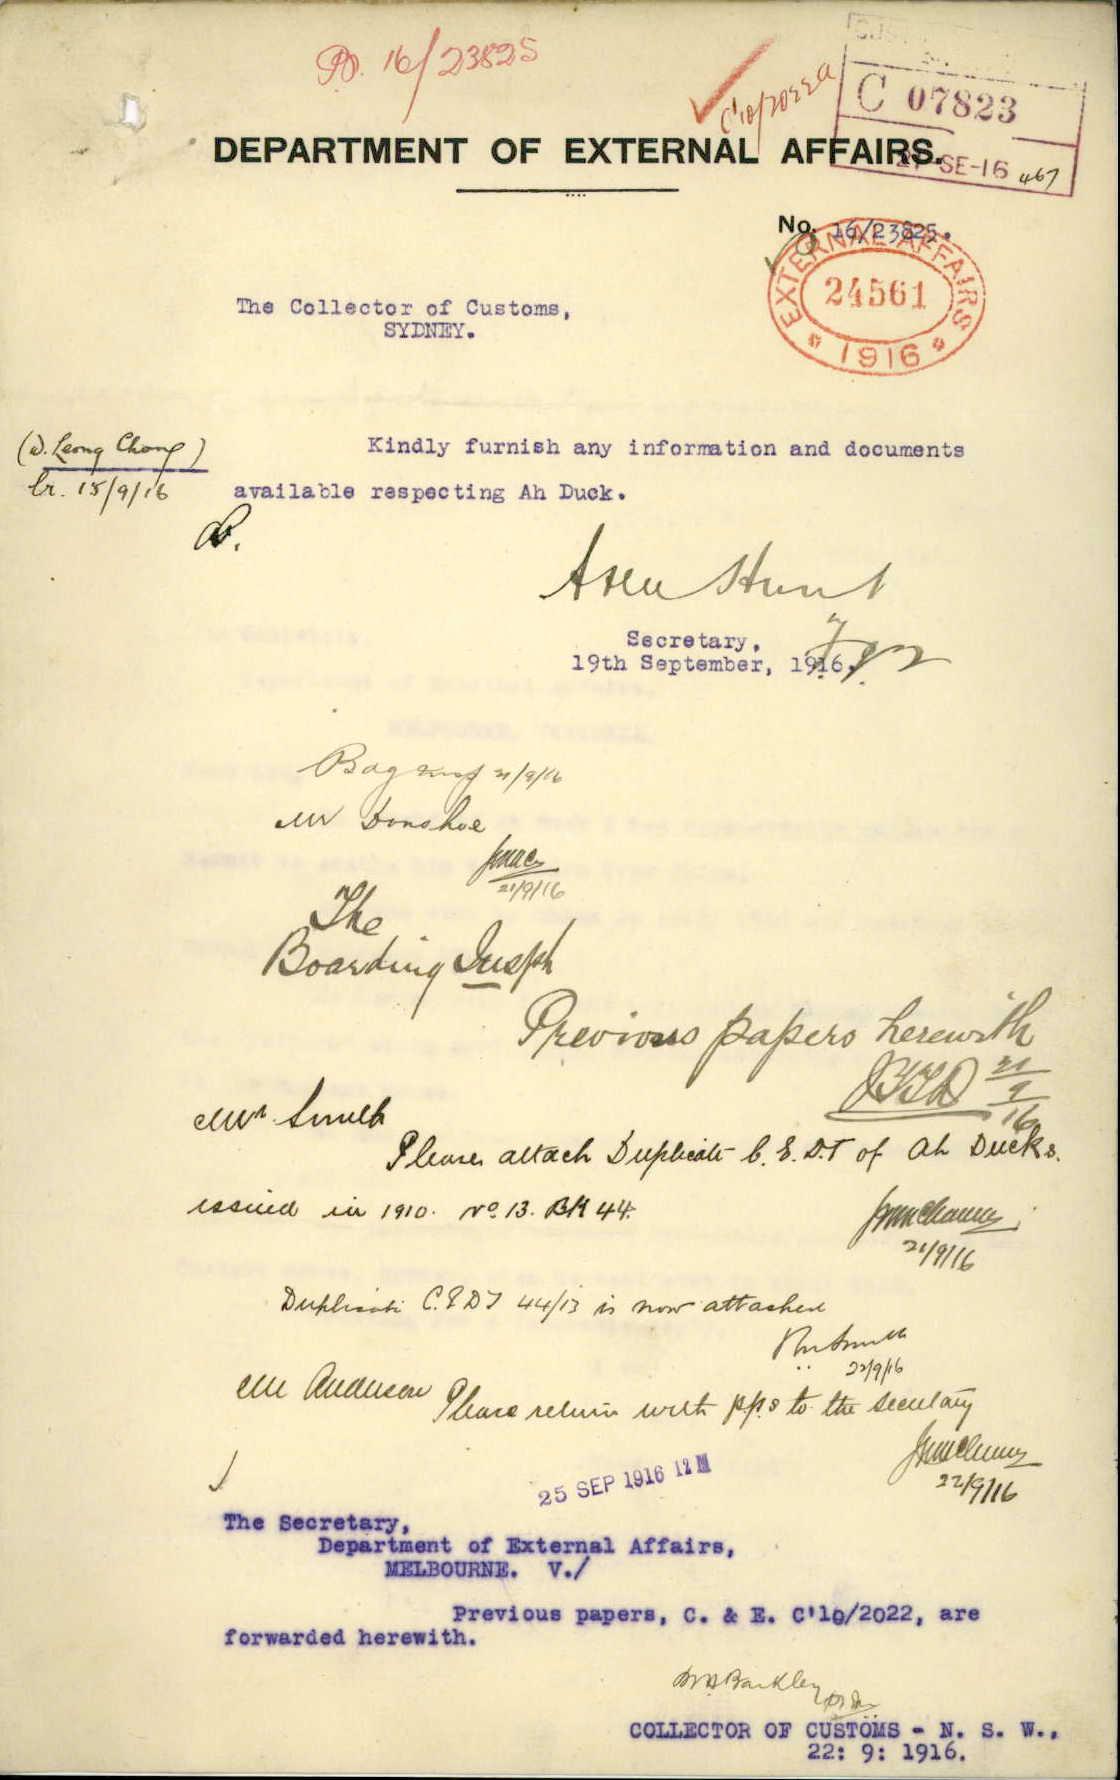 16/23825
C'10/2022
C 07823
SE-16 467
DEPARTMENT OF EXTERNAL AFFAIRS.
No. 16/23825.
EXTERNAL AFFAIRS
24561
1916
The Collector of Customs,
SYDNEY.
(W. Leong Chong)
lr. 15/9/16
Kindly furnish any information and documents
available respecting Ah Duck.
Atlee Hunt
Secretary,
19th September, 1916.
21/9/16
Mr Donohoe
21/9/16
The
Boarding Inspr
Previous papers herewith
21
9
16
Mr. Smith
Please attach Duplicate C.E.D.T of Ah Ducks.
issued in 1910. No. 13. BK 44.
21/9/16
Duplicate C.E.D.T 44/13 is now attached
Smith
22/9/16
Mr Anderson Please return with p.p.s to the Secretary
22/9/16
25 SEP 1916 12 M
The Secretary,
Department of External Affairs,
MELBOURNE. V./
Previous papers, C. & E. C'10/2022, are
forwarded herewith.
Barkley
COLLECTOR OF CUSTOMS - N. S. W.,
22: 9: 1916.